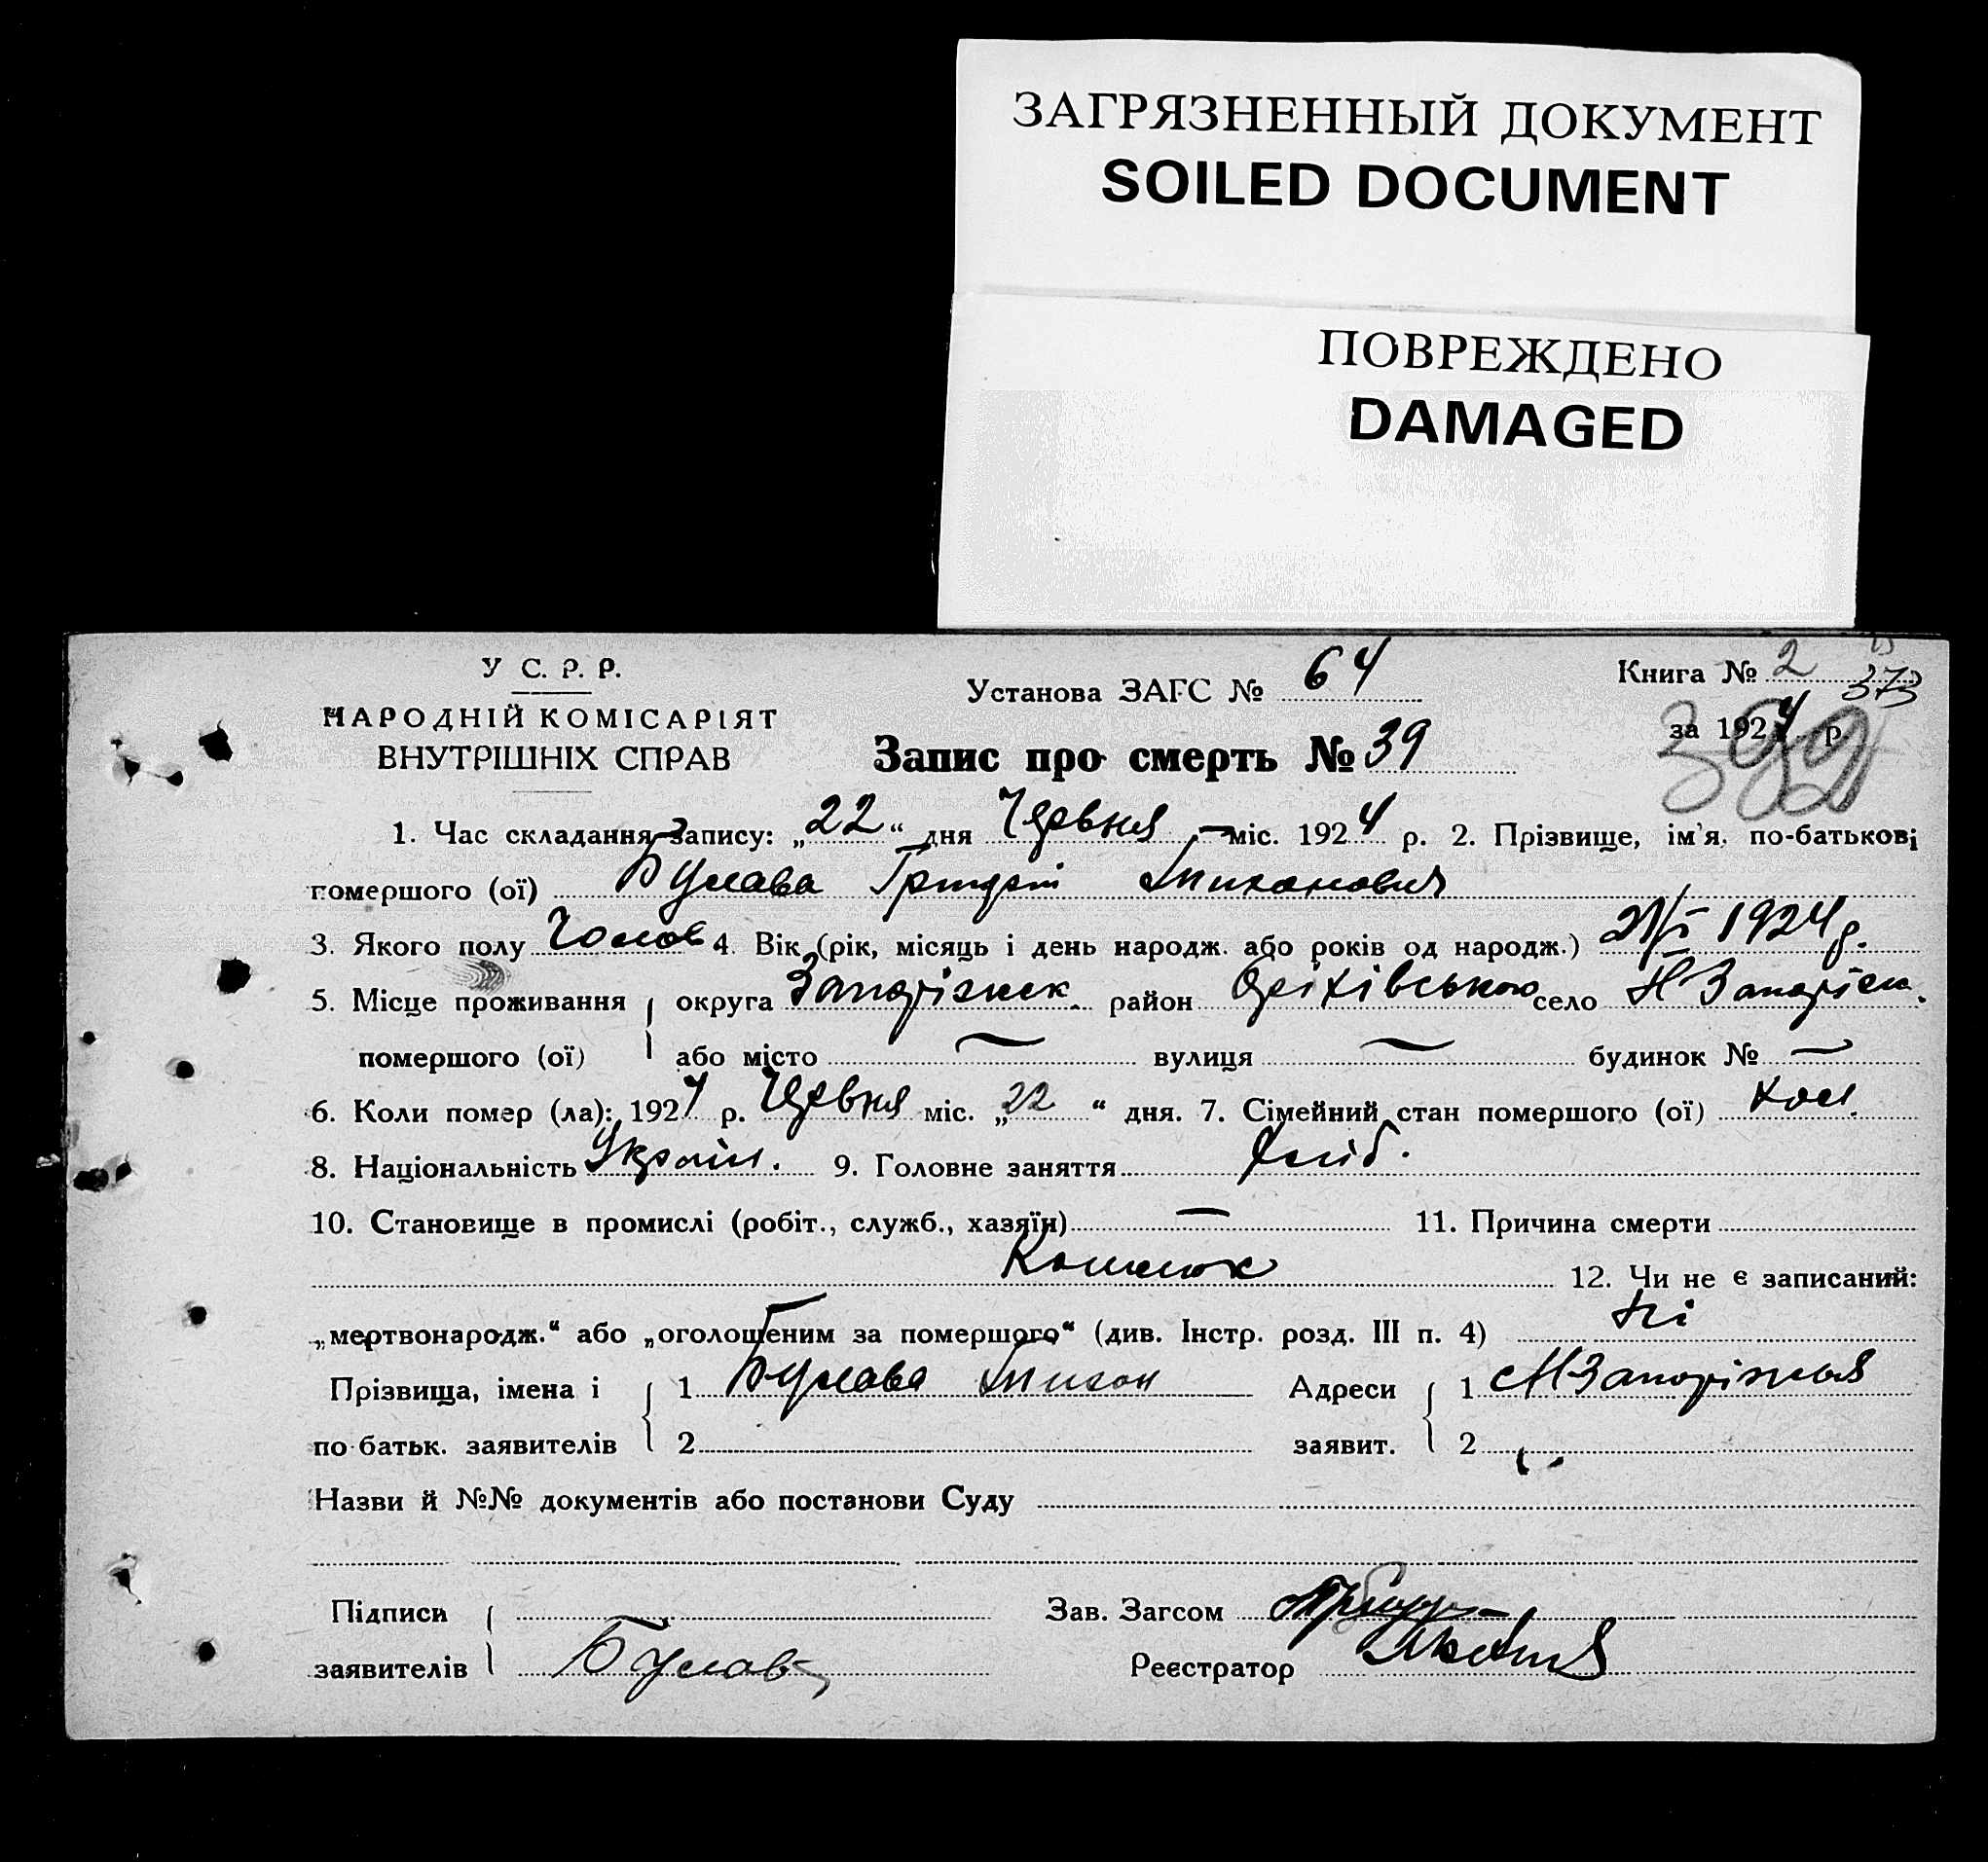 ЗАГРЯЗНЕННЫЙ ДОКУМЕНТ
SOILED DOCUMENT
ПОВРЕЖДЕНО
DAMAGED
У С. Р. Р.
НАРОДНІЙ КОМІСАРІЯТ
ВНУТРІШНІХ СПРАВ
Установа ЗАГС № 64
Книга № 2 373
за 1924 р.
Запис про смерть № 39
1. Час складання запису: „22“ дня Червня міс. 1924 р. 2. Прізвище, ім'я, по-батькові
помершого (ої) Булава
3. Якого полу Чолов 4. Вік (рік, місяць і день народж. або років од народж.) 1924 р.
5. Місце проживання округа Запоріжск район Оріхівського село Н Запоріжж.
помершого (ої) або місто — вулиця — будинок № —
6. Коли помер (ла): 1924 р. Червня міс. „22“ дня. 7. Сімейний стан помершого (ої)
8. Національність Україн. 9. Головне заняття Хліб.
10. Становище в промислі (робіт., служб., хазяїн) — 11. Причина смерти
Кашлюк 12. Чи не є записаний:
„мертвонародж.“ або „оголошеним за помершого“ (див. Інстр. розд. III п. 4) Ні
Прізвища, імена і 1 Булава Адреси 1 Н Запоріжжя
по батьк. заявителів 2 заявит. 2
Назви й №№ документів або постанови Суду
Підписи Зав. Загсом
заявителів Булава Реєстратор